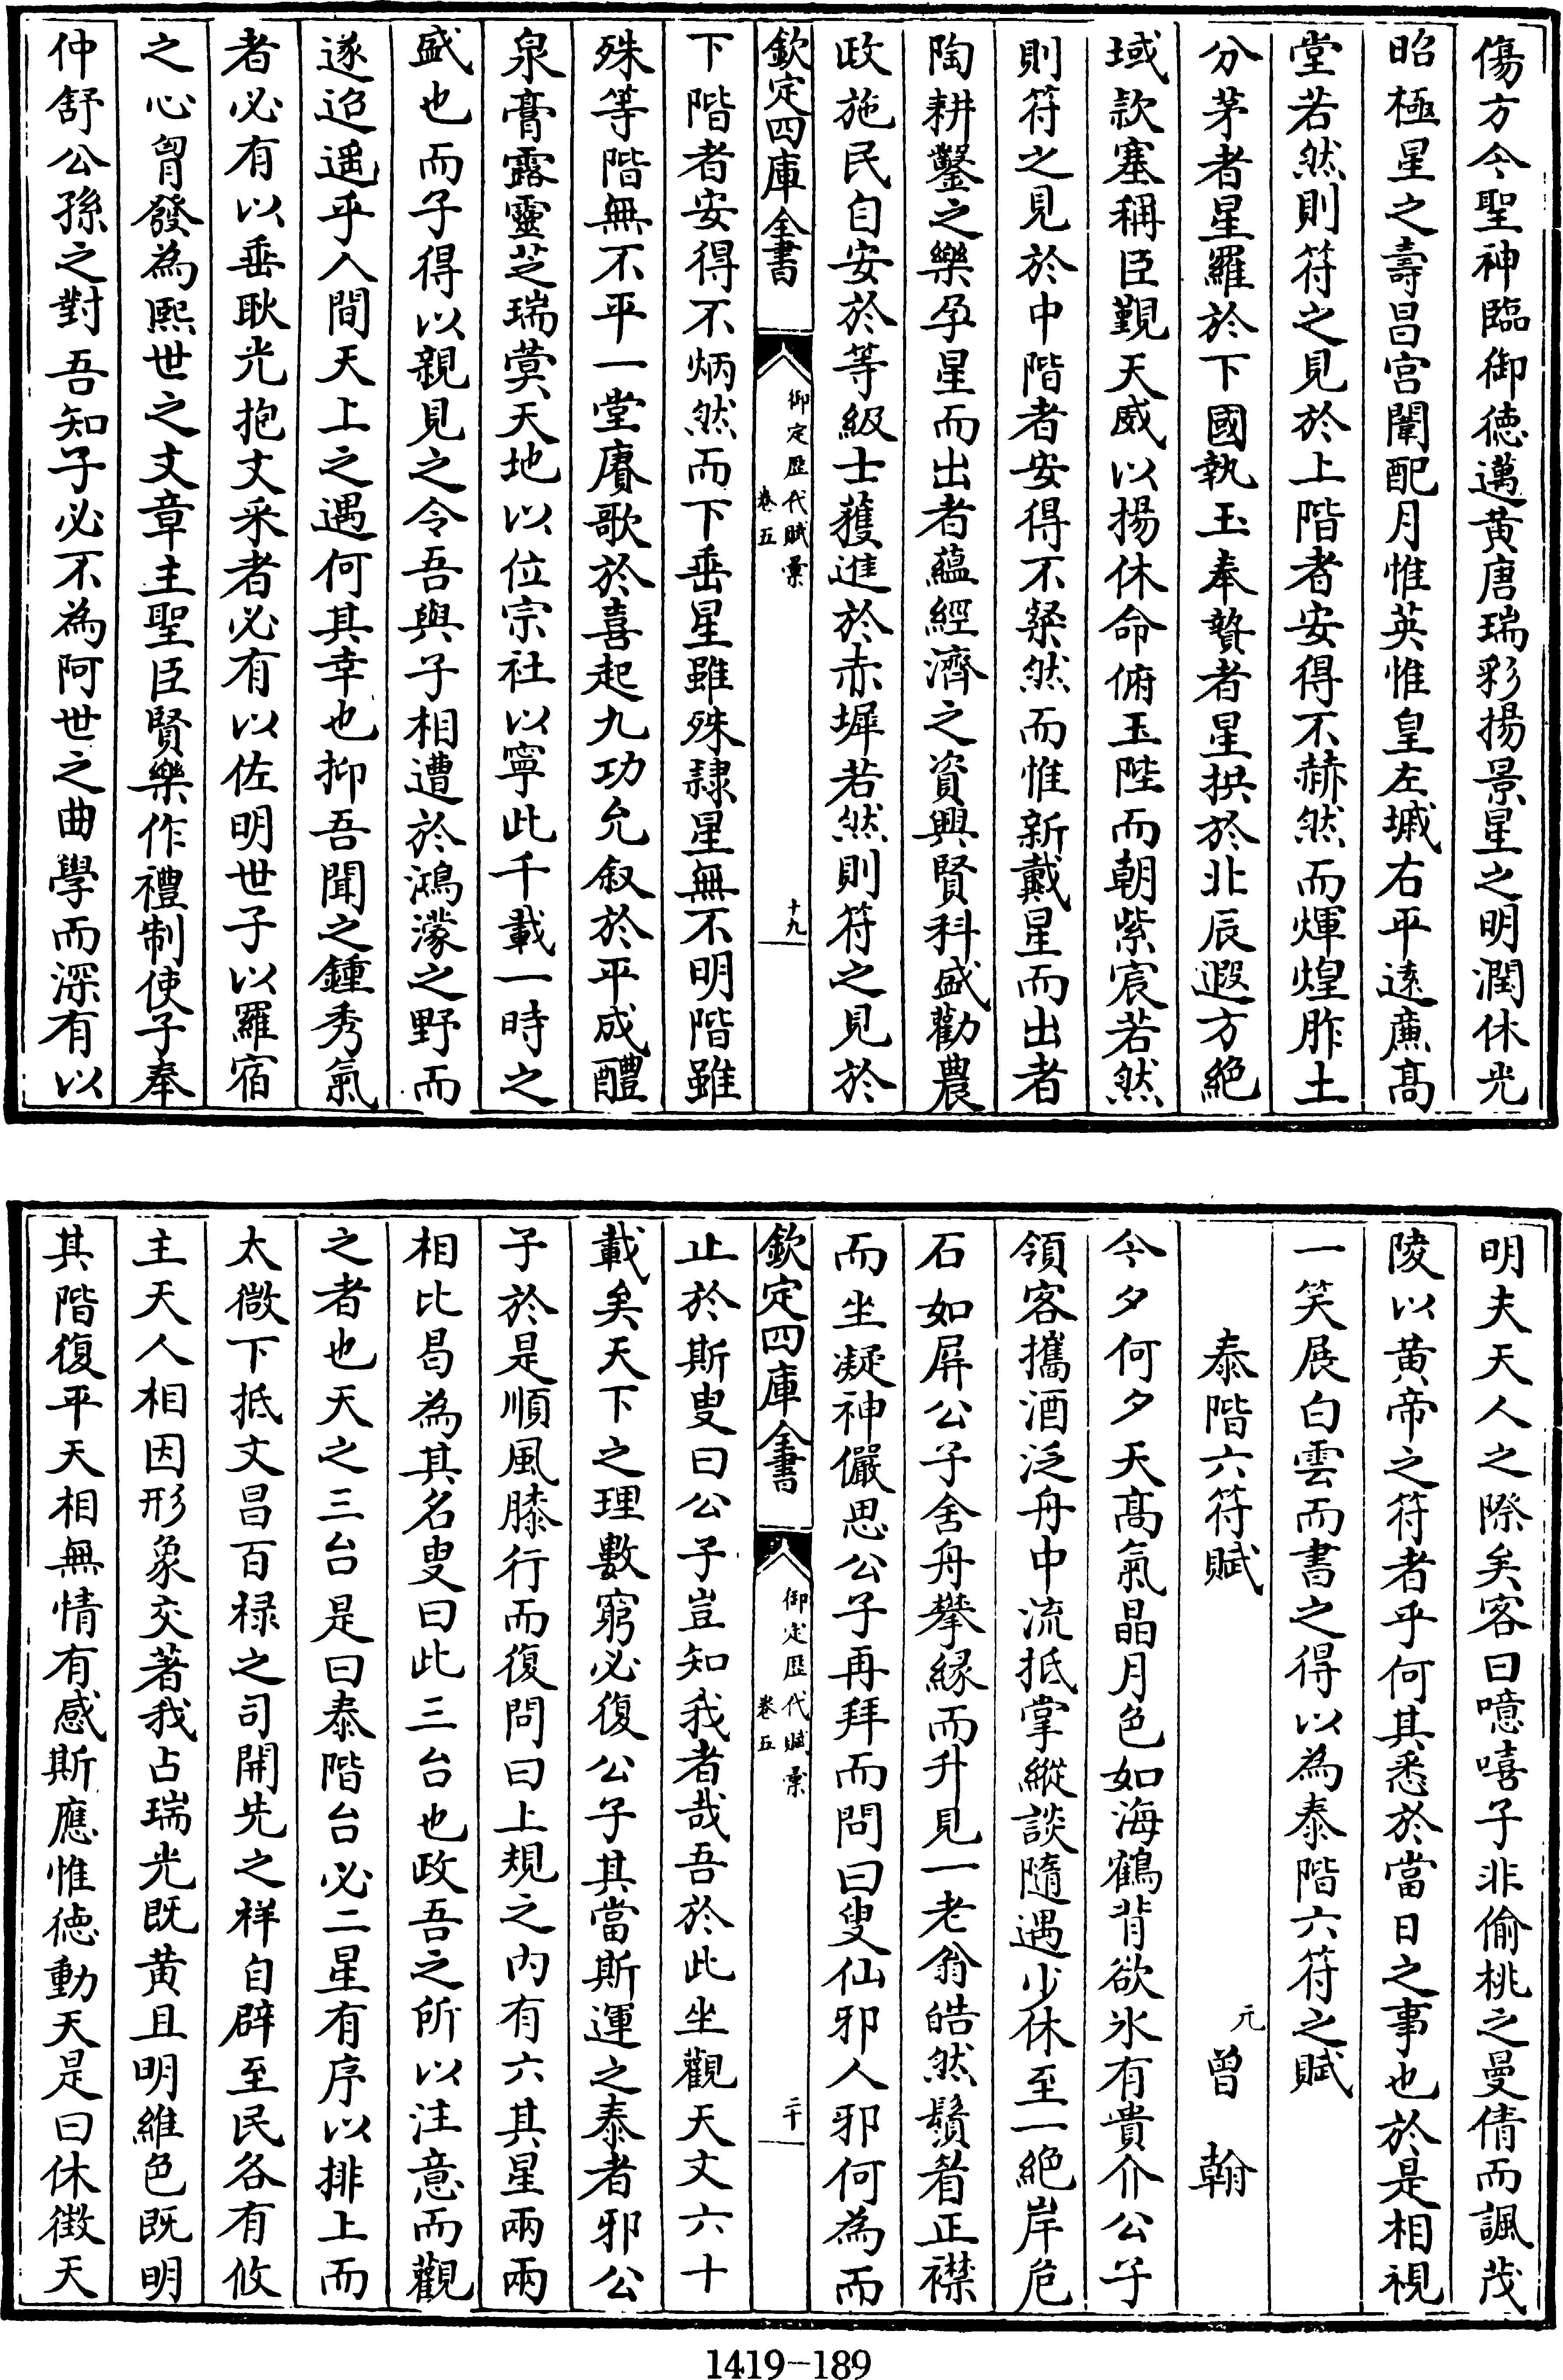 傷方今聖神臨御徳邁黄唐瑞彩揚景星之明潤休光
昭極星之壽昌宫闈配月惟英惟皇左墄右平逺廉髙
堂若然則符之見於上階者安得不赫然而煇煌胙土
分茅者星羅於下國執玉奉贄者星拱於北辰遐方絶
域欵塞稱臣覲天威以揚休命俯玉陛而朝紫宸若然
則符之見於中階者安得不粲然而惟新戴星而出者
陶耕鑿之樂孕星而出者藴經濟之資興賢科盛勸農
政施民自安於等級士獲進於赤墀若然則符之見於
欽定四庫全書
御定歴代賦彙
卷五
十九
下階者安得不炳然而下垂星雖殊隷星無不明階雖
殊等階無不平一堂賡歌於喜起九功允叙於平成醴
泉膏露靈芝瑞蓂天地以位宗社以寧此千載一時之
盛也而子得以親見之令吾與子相遭於鴻濛之野而
遂迢遥乎人間天上之遇何其幸也抑吾聞之鍾秀氣
者必有以垂耿光抱文采者必有以佐明世子以羅宿
之心胷發為熙世之文章主聖臣賢樂作禮制使子奉
仲舒公孫之對吾知子必不為阿世之曲學而深有以
明夫天人之際矣客曰噫嘻子非偷桃之曼倩而諷茂
陵以黄帝之符者乎何其悉於當日之事也於是相視
一笑展白雲而書之得以為泰階六符之賦
泰階六符賦
元
曾翰
今夕何夕天髙氣晶月色如海鶴背欲氷有貴介公子
領客攜酒泛舟中流抵掌縱談隨遇少休至一絶岸危
石如屏公子舍舟攀緣而升見一老翁皓然鬚眉正襟
而坐凝神儼思公子再拜而問曰叟仙邪人邪何為而
欽定四庫全書
御定歴代賦彙
卷五
二十
止於斯叟曰公子豈知我者哉吾於此坐觀天文六十
載矣天下之理數窮必復公子其當斯運之泰者邪公
子於是順風膝行而復問曰上規之内有六其星兩兩
相比曷為其名叟曰此三台也政吾之所以注意而觀
之者也天之三台是曰泰階台必二星有序以排上而
太微下抵文昌百禄之司開先之祥自辟至民各有攸
主天人相因形象交著我占瑞光既黄且明維色既明
其階復平天相無情有感斯應惟徳動天是曰休徴天
1419-189